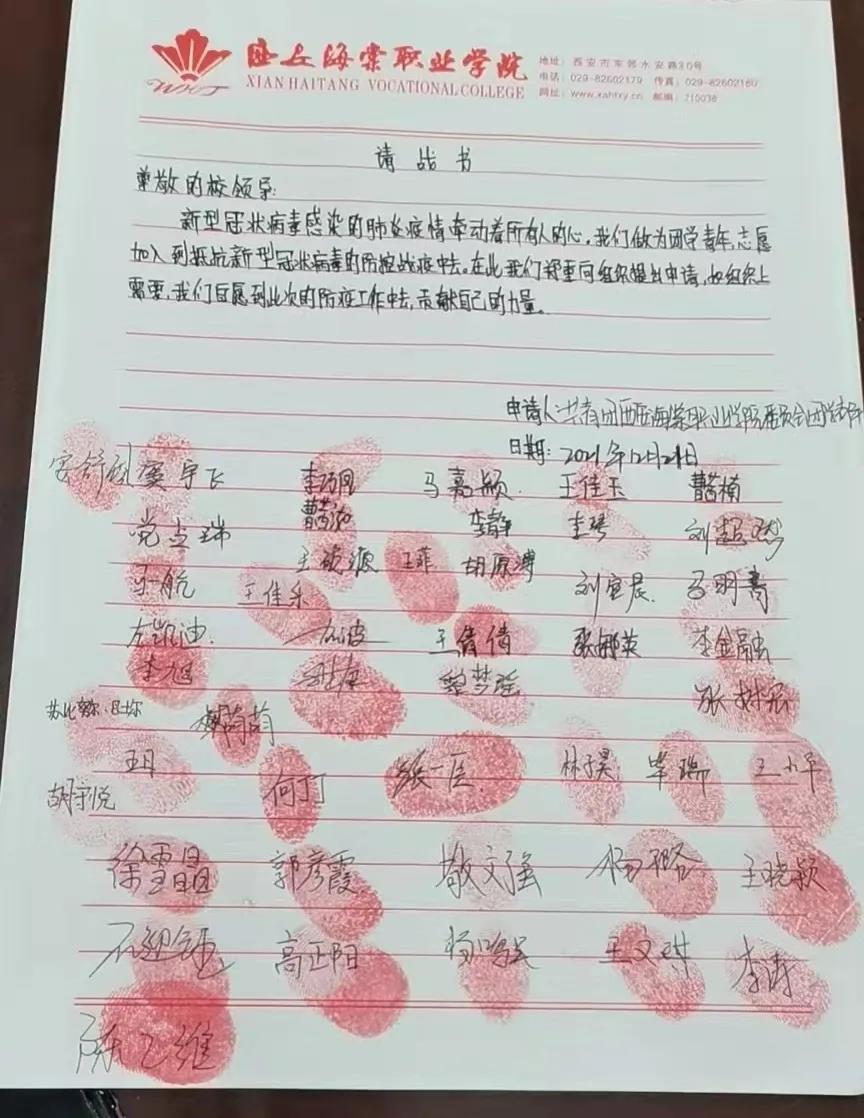 西安海棠职业学院
XIAN HAITANG VOCATIONAL COLLEGE
地址：西安市东郊水安路30号
电话：029-82602179 传真：029-82602180
网址：www.xahtxy.cn 邮编：710038
请战书
尊敬的校领导：
新型冠状病毒感染的肺炎疫情牵动着所有人的心，我们做为团学青年，志愿
加入到抵抗新型冠状病毒的防控战疫中去，在此我们郑重向组织提出申请，如组织上
需要，我们自愿到此次的防疫工作中去，贡献自己的力量。
申请人：共青团西安海棠职业学院委员会团学
日期：2021年12月21日
宇飞 马嘉颖 王佳玉
李静 李琴 刘
王 王菲 胡
马一航 王佳乐 刘宜晨 马明
左凯迪 王倩倩 张娜英 李金
李旭 黎梦瑶 张树宏
苏比
王丹 何丁丁 张一 林子昊 毕瑞 王小平
胡宇悦
徐雪晶 郭彦霞 敬文强 杨璐 王晓颖
高正阳 杨鸣 王文琪 李涛
陈乙维